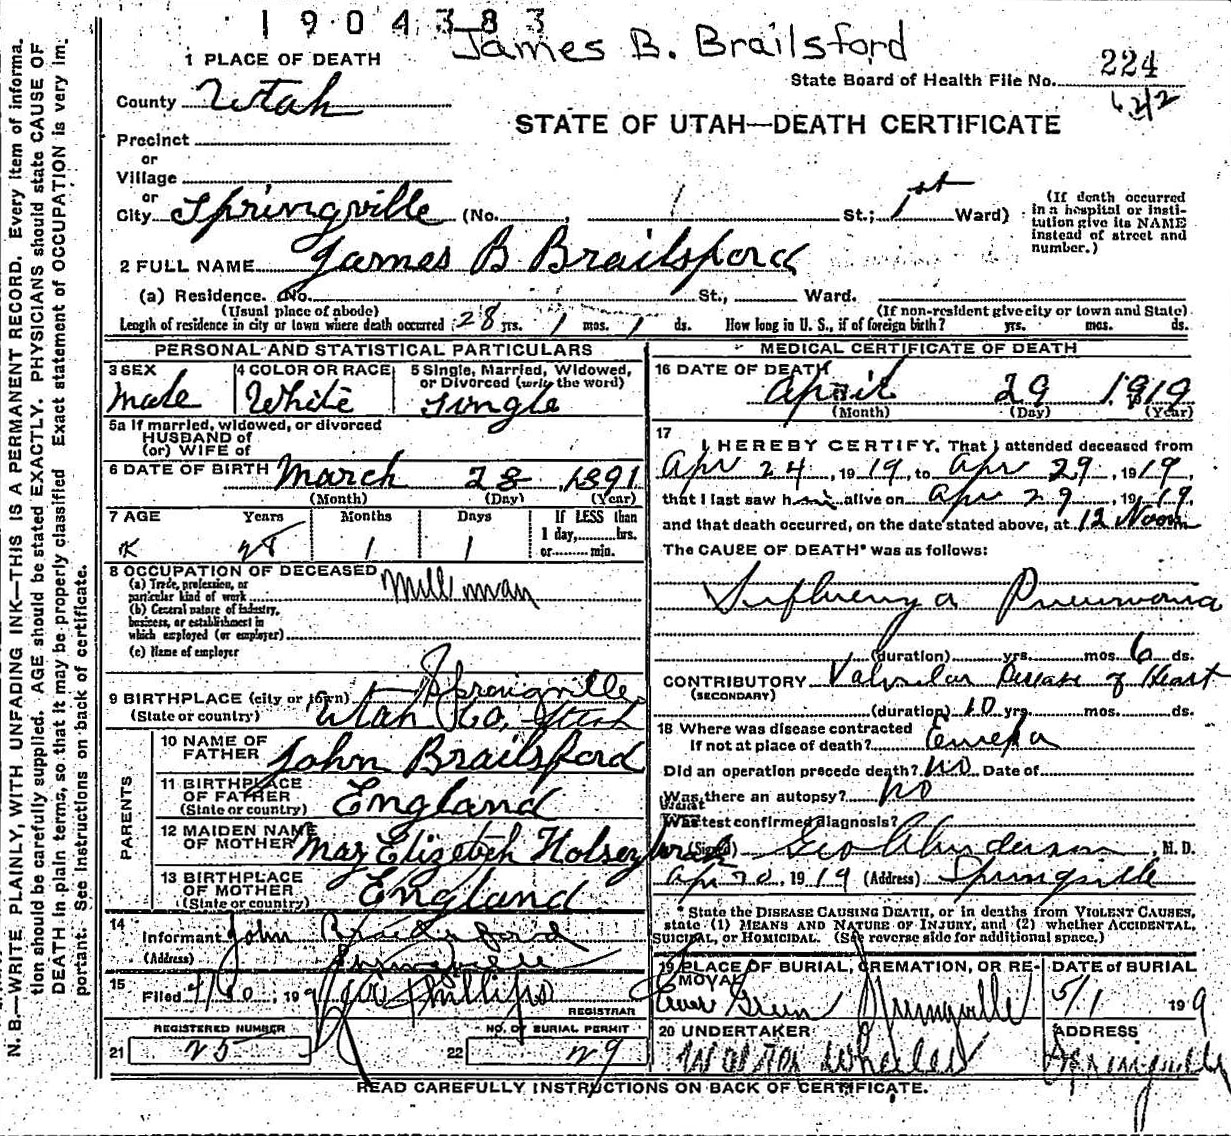 1904383
James B. Brailsford
1 PLACE OF DEATH
State Board of Health File No. 224
County Utah
STATE OF UTAH—DEATH CERTIFICATE
Precinct
or
Village
or
City Springville (No. , St.; 1st Ward)
(If death occurred in a hospital or insti-
tution give its NAME
instead of street and
number.)
2 FULL NAME James B Brailsford
(a) Residence. No. St., Ward.
(Usual place of abode) (If non-resident give city or town and State)
Length of residence in city or town where death occurred 28 yrs. 1 mos. 1 ds. How long in U. S., if of foreign birth? yrs. mos. ds.
PERSONAL AND STATISTICAL PARTICULARS
3 SEX Male
4 COLOR OR RACE White
5 Single, Married, Widowed, or Divorced (write the word) Single
5a If married, widowed, or divorced
HUSBAND of
(or) WIFE of
6 DATE OF BIRTH March 28, 1891
(Month) (Day) (Year)
7 AGE Years Months Days If LESS than
1 day, hrs.
or min.
28 1 1
8 OCCUPATION OF DECEASED
(a) Trade, profession, or
particular kind of work Mill man
(b) General nature of industry,
business, or establishment in
which employed (or employer)
(c) Name of employer
9 BIRTHPLACE (city or town) Springville
(State or country) Utah Co, Utah
PARENTS
10 NAME OF
FATHER John Brailsford
11 BIRTHPLACE
OF FATHER
(State or country) England
12 MAIDEN NAME
OF MOTHER May Elizebeth
13 BIRTHPLACE
OF MOTHER
(State or country) England
14 Informant John Brailsford
(Address) Springville
15 Filed 4/30, 19 Phillips
REGISTRAR
REGISTERED NUMBER
21 25
NO. OF BURIAL PERMIT
22 29
MEDICAL CERTIFICATE OF DEATH
16 DATE OF DEATH April 29 1919
(Month) (Day) (Year)
17 I HEREBY CERTIFY, That I attended deceased from
Apr 24, 1919, to Apr 29, 1919,
that I last saw him alive on Apr 29, 1919,
and that death occurred, on the date stated above, at 12 Noon
The CAUSE OF DEATH* was as follows:
Influenza Pneumonia
(duration) yrs. mos. 6 ds.
CONTRIBUTORY Valvular Disease of Heart
(SECONDARY)
(duration) 10 yrs. mos. ds.
18 Where was disease contracted
If not at place of death? Eureka
Did an operation precede death? No Date of
Was there an autopsy? No
What test confirmed diagnosis?
(Signed) Geo Anderson, M. D.
Apr 30, 1919 (Address) Springville
* State the DISEASE CAUSING DEATH, or in deaths from VIOLENT CAUSES,
state (1) MEANS AND NATURE OF INJURY, and (2) whether ACCIDENTAL,
SUICIDAL, or HOMICIDAL. (See reverse side for additional space.)
19 PLACE OF BURIAL, CREMATION, OR RE-
MOVAL DATE of BURIAL
Ever Green Springville 5/1 199
20 UNDERTAKER ADDRESS
Wheeler Springville
READ CAREFULLY INSTRUCTIONS ON BACK OF CERTIFICATE.
N. B.—WRITE PLAINLY, WITH UNFADING INK—THIS IS A PERMANENT RECORD. Every item of informa-
tion should be carefully supplied. AGE should be stated EXACTLY. PHYSICIANS should state CAUSE OF
DEATH in plain terms, so that it may be properly classified. Exact statement of OCCUPATION is very im-
portant. See instructions on back of certificate.